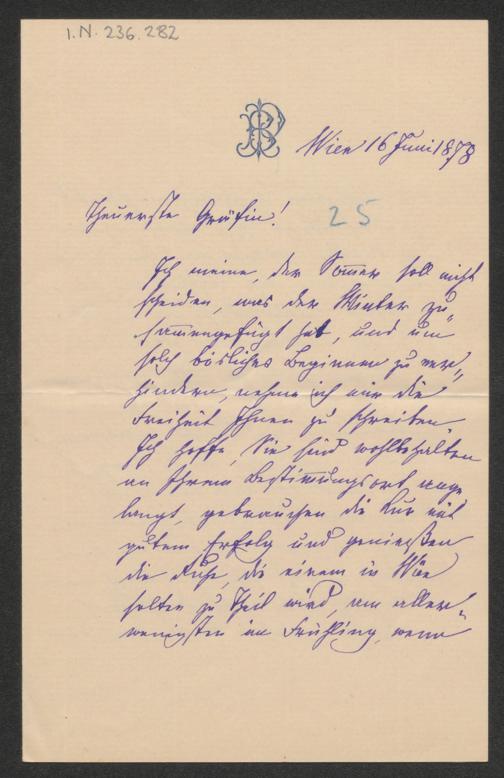 I.N. 236.282
Wien 16 Juni 1878
Theuerste Gräfin!
25
Ich meine, der Sommer soll nicht
scheiden, was der Winter zu„
sammengefügt hat, und um
solch bösliches Beginnen zu ver„
hindern, nehme ich mir die
Freiheit Ihnen zu schreiben.
Ich hoffe, Sie sind wohlbehalten
an Ihrem Bestimmungsort ange
langt, gebrauchen die Kur mit
gutem Erfolg und genießen
die Ruhe, die einem in Wien
selten zu Theil wird, am aller„
wenigsten im Frühling, wenn